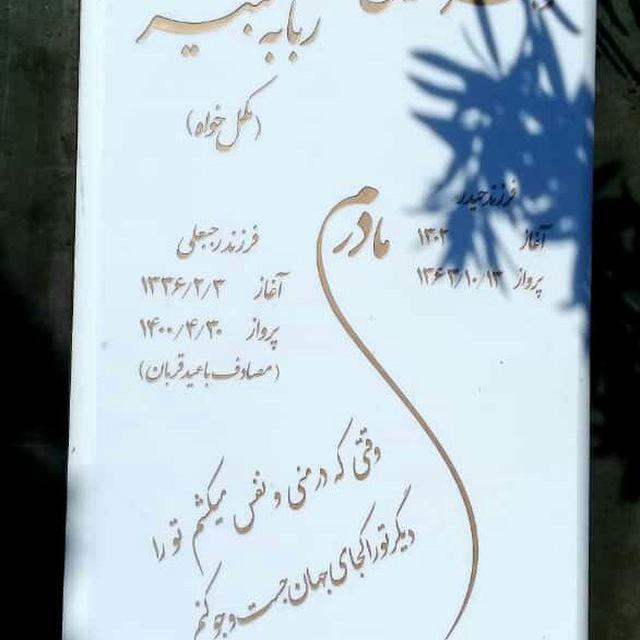 ربابه
(مکمل خواه)
فرزند حیدر
مادرم
آغاز ۱۳۰۲
فرزند رجبعلی
پرواز ۱۳۶۳/۱۰/۱۳
آغاز ۱۳۳۶/۲/۳
پرواز ۱۴۰۰/۴/۳۰
(مصادف با عید قربان)
وقتی که در منی و نفس میکشم تو را
دیگر تو را کجای جهان جست و جو کنم